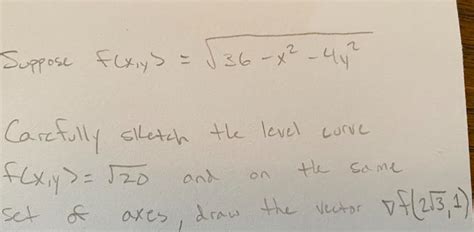 Suppose f(x,y) = √36 - x² - 4y²
Carefully sketch the level curve
f(x,y) = √20 and on the same
set of axes, draw the vector ∇f(2√3, 1)